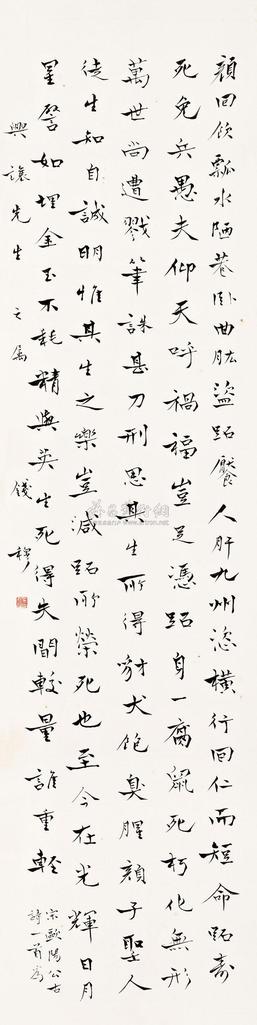 顏回飲瓢水陋巷臥曲肱盜跖饜人肝九州恣橫行回仁而短命跖壽
死免兵愚夫仰天呼禍福豈足憑跖身一腐鼠死朽化無形
萬世尚遭戮筆誅甚刀刑思其生所得豺犬飽臭腥顏子聖人
徒生知自誠明惟其生之樂豈減跖所榮死也至今在光輝日月
星譬如埋金玉不耗精與英生死得失間較量誰重輕
宋歐陽公古
詩一首為
興讓先生之屬 錢穆